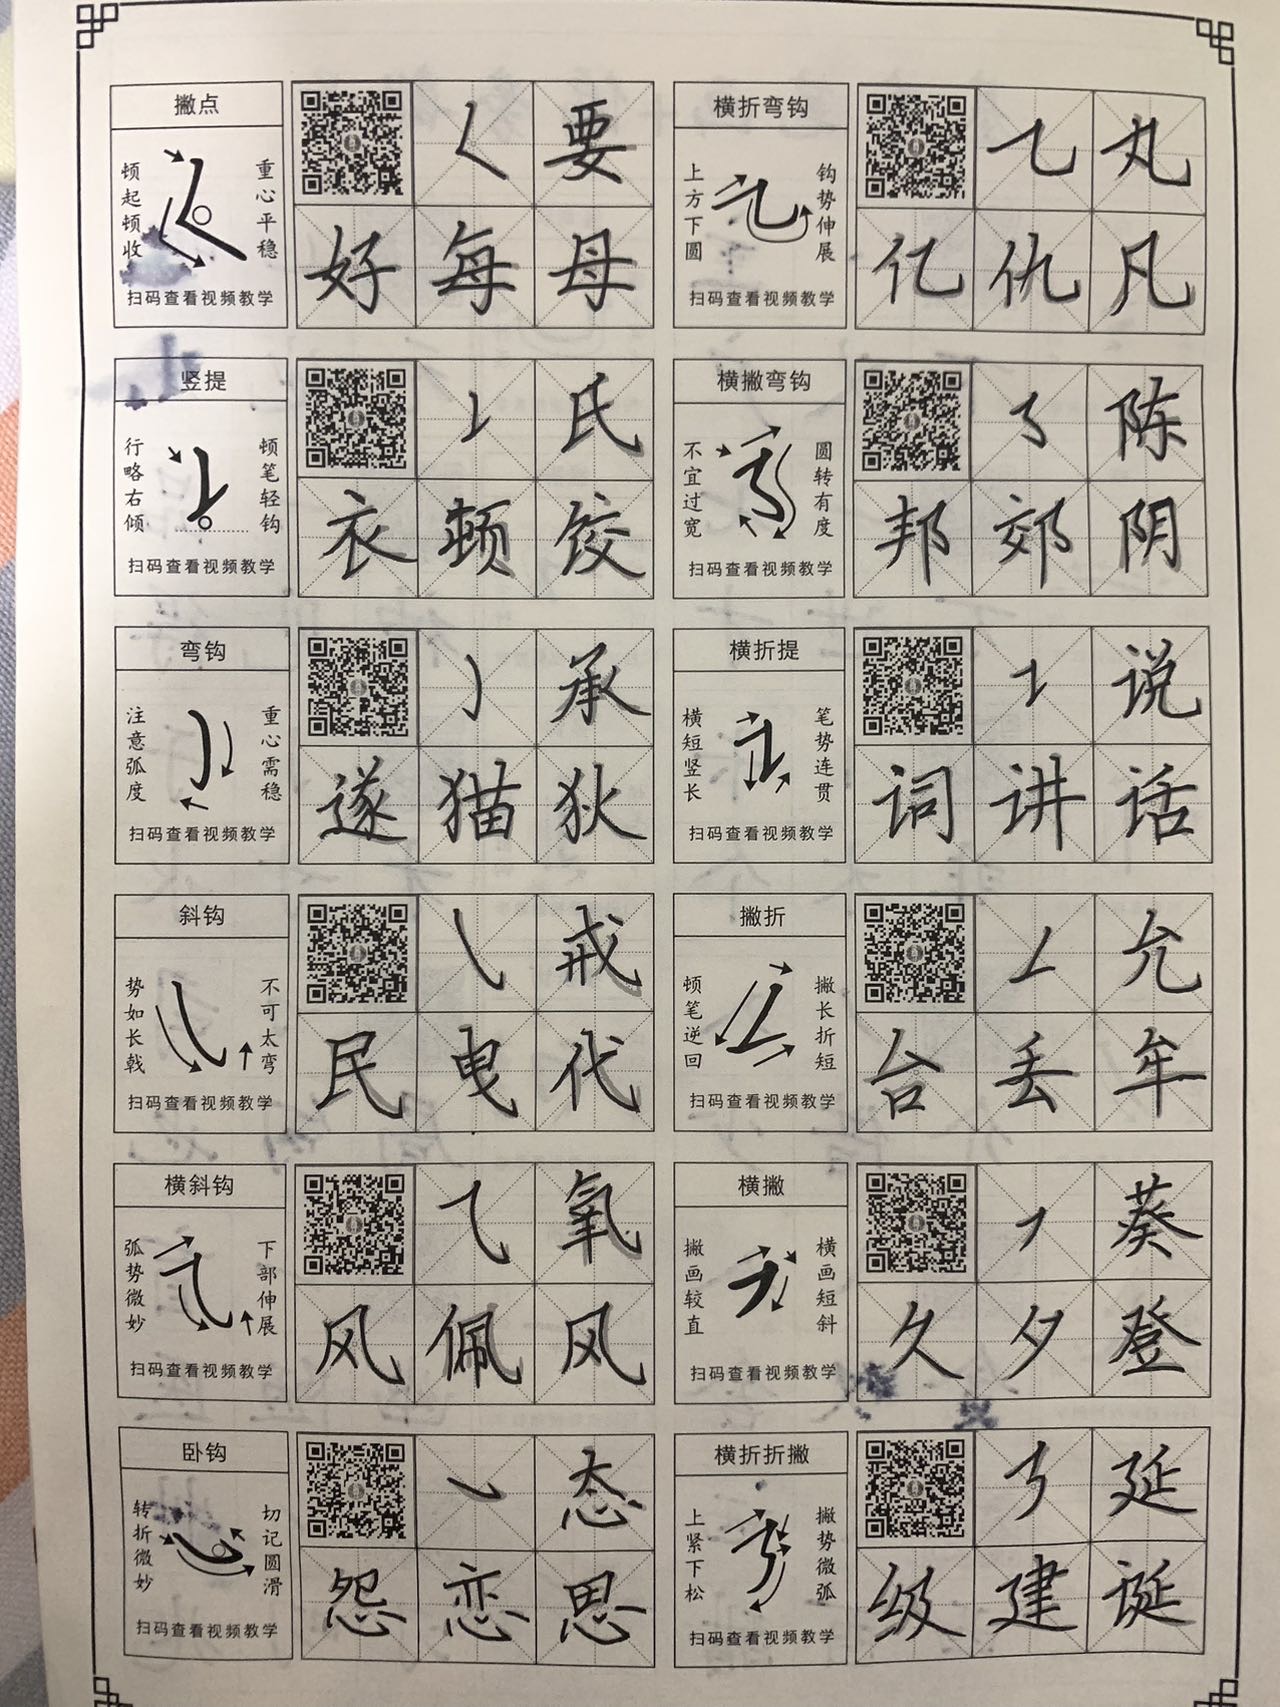 撇点
顿起顿收
重心平稳
扫码查看视频教学
𡿨 要
好 每 母
横折弯钩
上方下圆
钩势伸展
扫码查看视频教学
⺄ 丸
亿 仇 凡
竖提
行略右倾
顿笔轻钩
扫码查看视频教学
㇙ 氏
衣 顿 饺
横撇弯钩
不宜过宽
圆转有度
扫码查看视频教学
㇌ 陈
邦 郊 阴
弯钩
注意弧度
重心需稳
扫码查看视频教学
㇁ 承
遂 猫 狄
横折提
横短竖长
笔势连贯
扫码查看视频教学
㇊ 说
词 讲 话
斜钩
势如长戟
不可太弯
扫码查看视频教学
㇂ 戒
民 曳 代
撇折
顿笔逆回
撇长折短
扫码查看视频教学
㇜ 允
台 丢 牟
横斜钩
弧势微妙
下部伸展
扫码查看视频教学
⺄ 氧
风 佩 风
横撇
撇画较直
横画短斜
扫码查看视频教学
㇇ 葵
久 夕 登
卧钩
转折微妙
切记圆滑
扫码查看视频教学
㇃ 态
怨 恋 思
横折折撇
上紧下松
撇势微弧
扫码查看视频教学
㇋ 延
级 建 诞